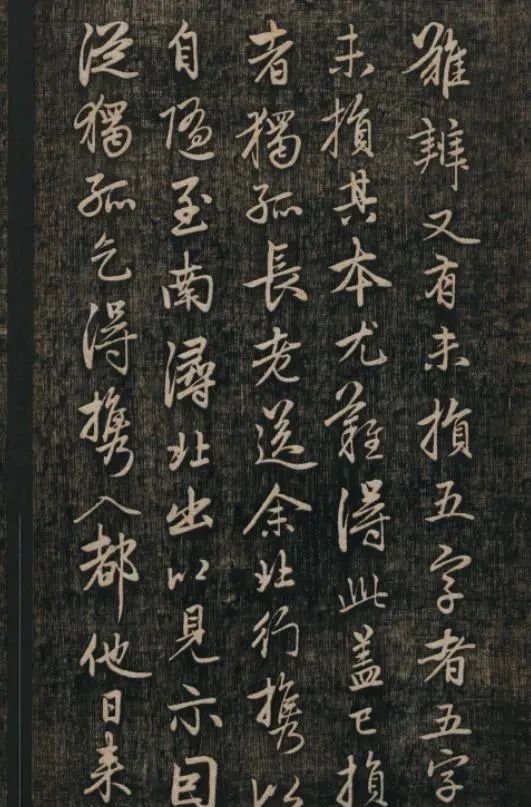 難辨又有未損五字者五字
未損其本尤難得此蓋已損
者獨孤長老送余北行携以
自随至南潯北出以見示因
從獨孤乞得携入都他日来